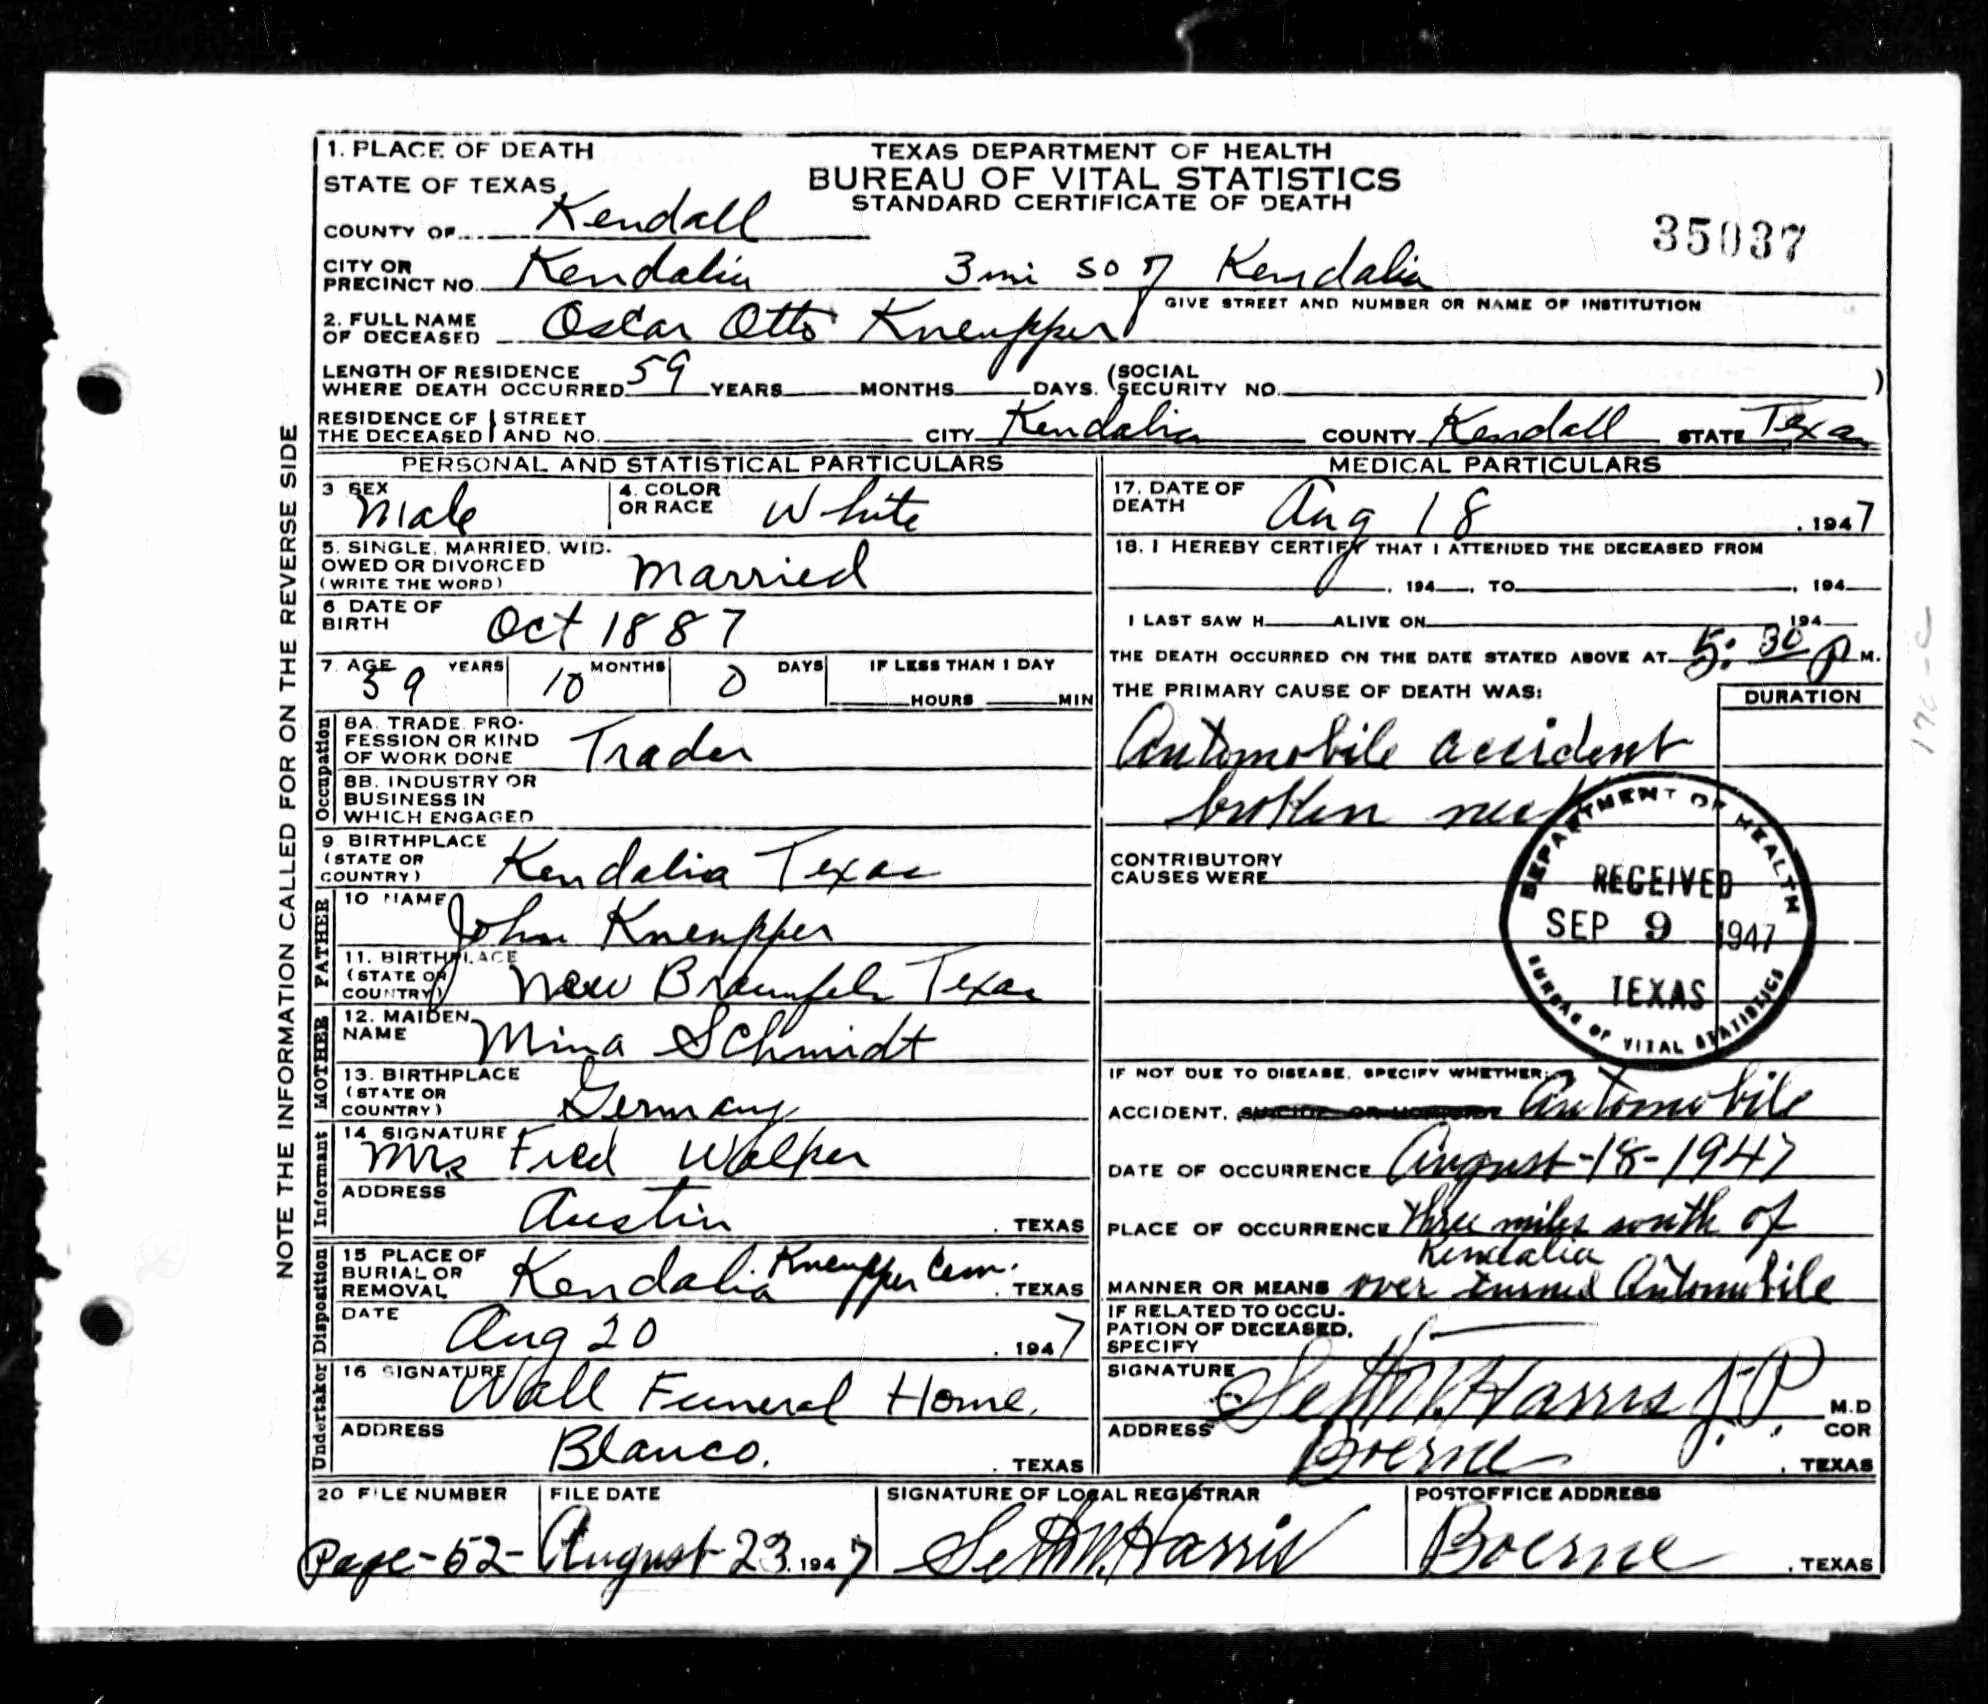 1. PLACE OF DEATH
TEXAS DEPARTMENT OF HEALTH
STATE OF TEXAS,
BUREAU OF VITAL STATISTICS
STANDARD CERTIFICATE OF DEATH
COUNTY OF Kendall
35037
CITY OR PRECINCT NO. Kendalia 3 mi so of Kendalia
GIVE STREET AND NUMBER OR NAME OF INSTITUTION
2. FULL NAME OF DECEASED Oscar Otto Kneupper
LENGTH OF RESIDENCE WHERE DEATH OCCURRED 59 YEARS MONTHS DAYS. (SOCIAL SECURITY NO. )
RESIDENCE OF THE DECEASED STREET AND NO. CITY Kendalia COUNTY Kendall STATE Texas
PERSONAL AND STATISTICAL PARTICULARS
3 SEX Male 4. COLOR OR RACE White
5. SINGLE, MARRIED, WIDOWED OR DIVORCED (WRITE THE WORD) Married
6 DATE OF BIRTH Oct 1887
7. AGE 59 YEARS 10 MONTHS 0 DAYS IF LESS THAN 1 DAY HOURS MIN
Occupation
8A. TRADE, PROFESSION OR KIND OF WORK DONE Trader
8B. INDUSTRY OR BUSINESS IN WHICH ENGAGED
9 BIRTHPLACE (STATE OR COUNTRY) Kendalia Texas
FATHER
10 NAME John Kneupper
11. BIRTHPLACE (STATE OR COUNTRY) New Braunfels Texas
MOTHER
12. MAIDEN NAME Mina Schmidt
13. BIRTHPLACE (STATE OR COUNTRY) Germany
Informant
14 SIGNATURE Mrs Fred Walker
ADDRESS Austin, TEXAS
Disposition
15 PLACE OF BURIAL OR REMOVAL Kendalia Kneupper Cem. TEXAS
DATE Aug 20, 1947
Undertaker
16 SIGNATURE Wall Funeral Home.
ADDRESS Blanco. , TEXAS
MEDICAL PARTICULARS
17. DATE OF DEATH Aug 18, 1947
18. I HEREBY CERTIFY THAT I ATTENDED THE DECEASED FROM
, 194 , TO , 194
I LAST SAW H ALIVE ON 194
THE DEATH OCCURRED ON THE DATE STATED ABOVE AT 5:30 P M.
THE PRIMARY CAUSE OF DEATH WAS: DURATION
Automobile accident
broken neck
CONTRIBUTORY CAUSES WERE
DEPARTMENT OF HEALTH
RECEIVED
SEP 9 1947
TEXAS
BUREAU OF VITAL STATISTICS
IF NOT DUE TO DISEASE, SPECIFY WHETHER:
ACCIDENT, SUICIDE OR HOMICIDE Automobile
DATE OF OCCURRENCE August-18-1947
PLACE OF OCCURRENCE three miles south of Kendalia
MANNER OR MEANS over turned Automobile
IF RELATED TO OCCUPATION OF DECEASED, SPECIFY
SIGNATURE Seth W. Harris J.P. M.D COR
ADDRESS Boerne, TEXAS
20 FILE NUMBER Page-52-
FILE DATE August 23, 1947
SIGNATURE OF LOCAL REGISTRAR Seth W. Harris
POSTOFFICE ADDRESS Boerne, TEXAS
NOTE THE INFORMATION CALLED FOR ON THE REVERSE SIDE